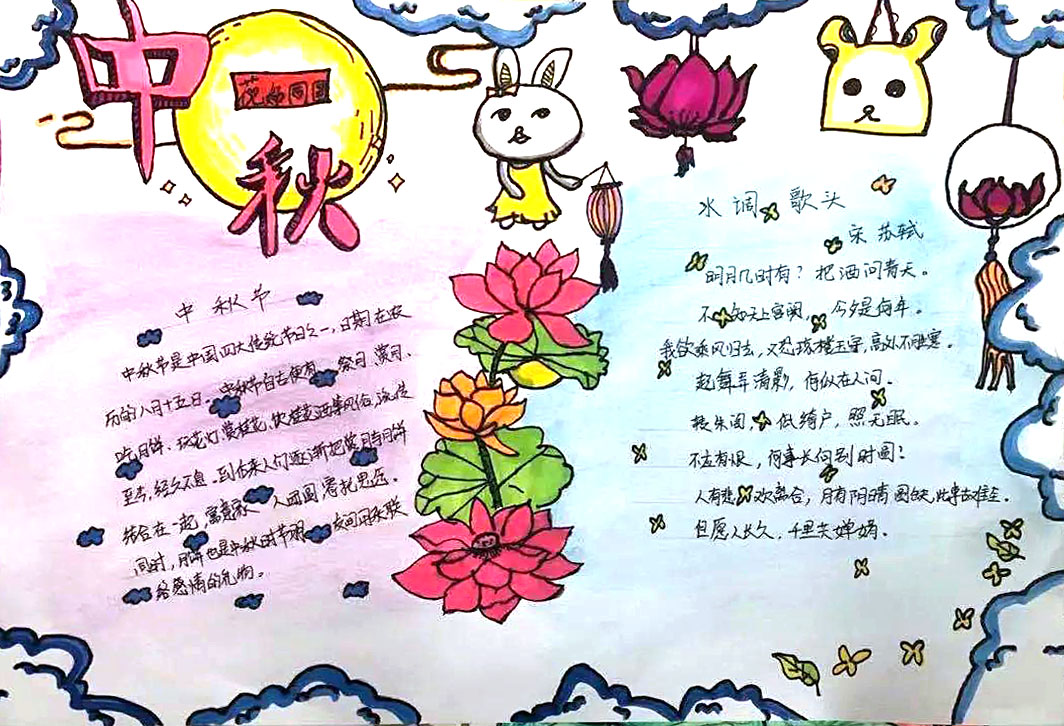 中秋
花好圆圆
中秋节
中秋节是中国四大传统节日之一，日期在农
历的八月十五日。中秋节自古便有祭月、赏月、
吃月饼、玩花灯、赏桂花、饮桂花酒等风俗，流传
至今，经久不息。到后来人们逐渐把赏月与月饼
结合在一起，寓意家人团圆，寄托思念。
同时，月饼也是中秋时节朋友间用来联
络感情的礼物。
水调歌头
宋 苏轼
明月几时有？把酒问青天。
不知天上宫阙，今夕是何年。
我欲乘风归去，又恐琼楼玉宇，高处不胜寒。
起舞弄清影，何似在人间。
转朱阁，低绮户，照无眠。
不应有恨，何事长向别时圆？
人有悲欢离合，月有阴晴圆缺，此事古难全。
但愿人长久，千里共婵娟。